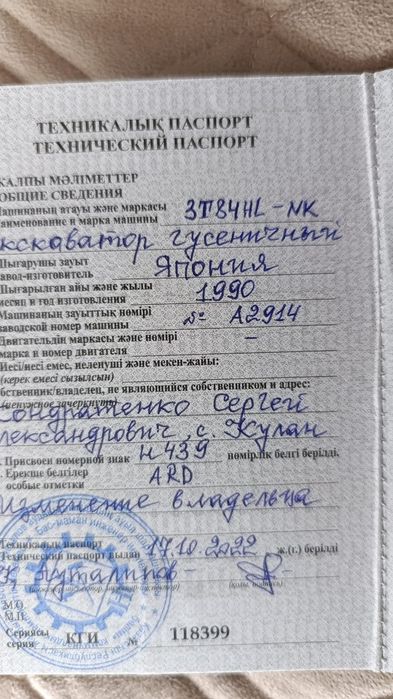 ТЕХНИКАЛЫҚ ПАСПОРТ
ТЕХНИЧЕСКИЙ ПАСПОРТ
ЖАЛПЫ МӘЛІМЕТТЕР
ОБЩИЕ СВЕДЕНИЯ
Машинаның атауы және маркасы
наименование и марка машины 3T84HL-NK
экскаватор гусеничный
Шығарушы зауыт
завод-изготовитель Япония
Шығарылған айы және жылы
месяц и год изготовления 1990
Машинаның зауыттық нөмірі
заводской номер машины № А2914
Двигательдің маркасы және нөмірі
марка и номер двигателя –
Иесі/иесі емес, иеленуші және мекен-жайы:
(керек емесі сызылсын)
собственник/владелец, не являющийся собственником и адрес:
(ненужное зачеркнуть)
Кондратенко Сергей
Александрович с. Кулан
Присвоен номерной знак Н 439 нөмірлік белгі берілді.
Ерекше белгілер
особые отметки ARD
Изменение владельца
Техникалық паспорт
Технический паспорт выдан 17.10.2022 ж.(г.) берілді
М.О.
М.П.
Сериясы
серия КГИ № 118399